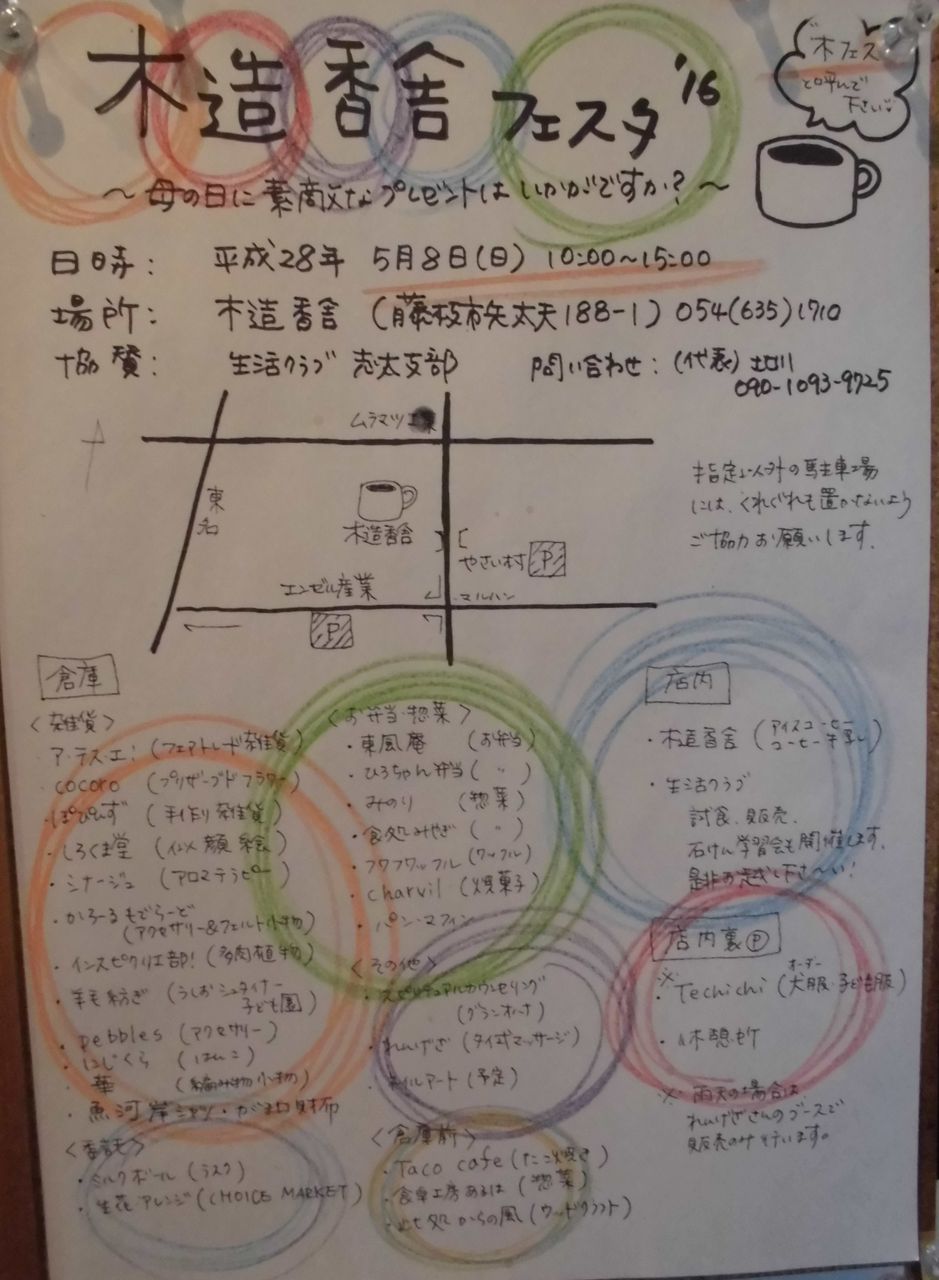 木造香舎 フェスタ '16
"木フェス"
と呼んで
下さい♡
～母の日に素敵なプレゼントはいかがですか？～
日時： 平成28年 5月8日(日) 10:00～15:00
場所： 木造香舎 (藤枝市矢太夫188-1) 054(635)1710
協賛： 生活クラブ 志太支部 問い合わせ：(代表)
090-1093-9725
ムラマツ
東名
木造香舎
やさい村 P
エンゼル産業
マルハン
P
指定以外の駐車場
には、くれぐれも置かないよう
ご協力お願いします。
倉庫
〈雑貨〉
・ア・テス・エ! (フェアトレード雑貨)
・cocoro (プリザーブドフラワー)
・ぽぴんず (手作り雑貨)
・しろくま堂 (似顔絵)
・シナージュ (アロマテラピー)
・かろーるもでらーど
(アクセサリー&フェルト小物)
・インスピクリエ部! (多肉植物)
・羊毛紡ぎ (うしおシュタイナー
子ども園)
・pebbles (アクセサリー)
・にじくら (はんこ)
・華 (編み物小物)
・魚河岸シャツ・がま口財布
〈委託〉
・ミルクボール (ラスク)
・生花アレンジ (CHOICE MARKET)
〈お弁当・惣菜〉
・東風庵 (お弁当)
・ひろちゃん弁当 (〃)
・みのり (惣菜)
・食処みやぎ (〃)
・フワフワッフル (ワッフル)
・charvil (焼菓子)
・パン・マフィン
〈その他〉
・スピリチュアルカウンセリング
(グランオハナ)
・れんげざ (タイ式マッサージ)
・ネイルアート (予定)
〈倉庫前〉
・Taco cafe (たこ焼き)
・食卓工房あるは (惣菜)
・処からの風 (ウッドクラフト)
店内
・木造香舎 (アイスコーヒー
コーヒー牛乳)
・生活クラブ
試食、販売、
石けん学習会も開催します。
是非お越し下さ～い!
店内裏 P
※
・Techichi (オーダー
犬服・子ども服)
・木憩
※ 雨天の場合は
れんげざさんのブースで
販売のみ行います。